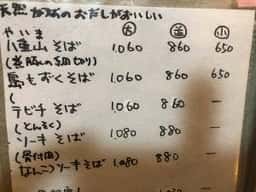 天然だしのおだしがおいしい
やいま 大 並 小
八重山そば 1,060 860 650
島もずくそば 1,060 860 650
(
テビチそば 1,060 860 —
(とんそく)
ソーキそば 1,080 880 —
(骨付肉)
なんこつソーキそば 1,080 880 —